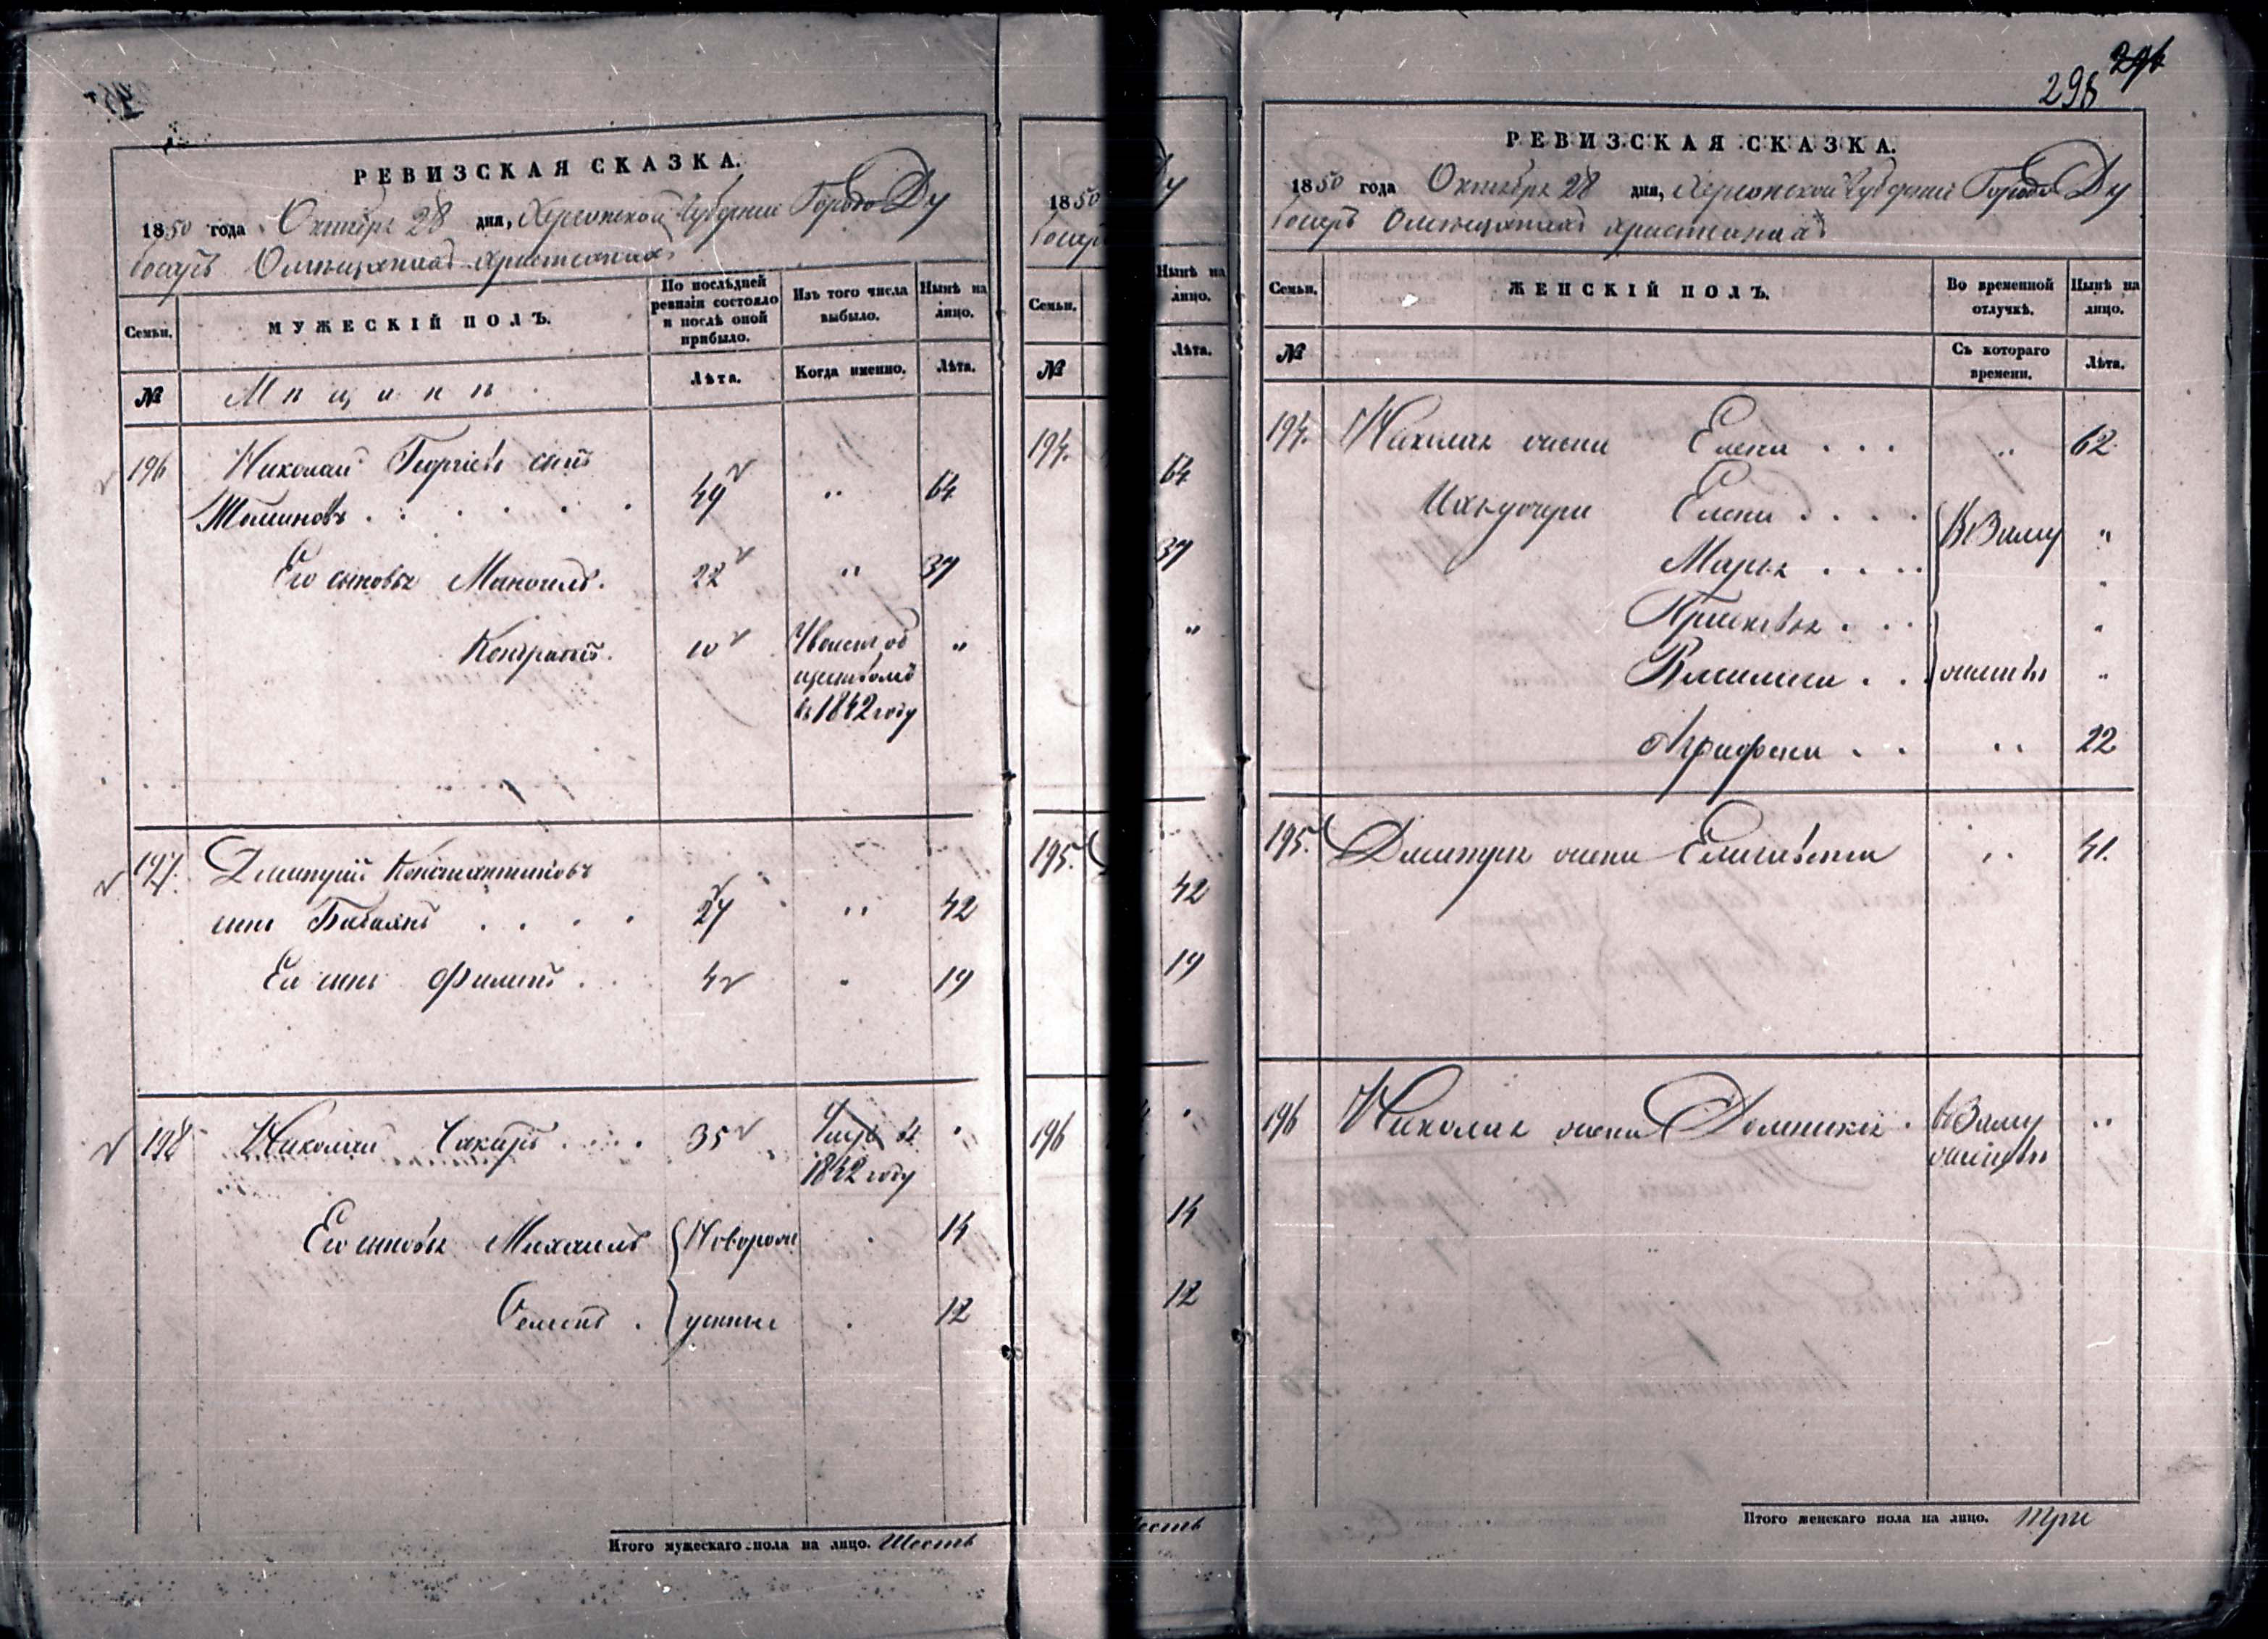 РЕВИЗСКАЯ СКАЗКА.
1850 года Октября 28 дня, Херсонской Губернии Города Ду
босаръ Омѣщанахъ христианахъ
Семьи.
МУЖЕСКІЙ ПОЛЪ.
По послѣдней ревизіи состояло и послѣ оной прибыло.
Изъ того числа выбыло.
Нынѣ на лицо.
№
Мѣщане
Лѣта.
Когда именно.
Лѣта.
196 Николай Георгіевъ сынъ
49 " 64
Его сыновья Маноилъ. 22 " 37
Кондратъ. 10 Уволенъ об
ществомъ
въ 1842 году "
197. Дмитрий Константиновъ
сынъ 27 " 42
Его сынъ Филипъ 4 " 19
198 Николай Чакиръ 35 Умре въ
1842 году "
Его сыновья Михаилъ Новорож 14
Семенъ денные 12
Итого мужескаго пола на лицо. Шесть
1850
Семьи.
Нынѣ на лицо.
№
Лѣта.
194.
64
37
"
195.
42
19
196
14
12
298 296
РЕВИЗСКАЯ СКАЗКА.
1850 года Октября 28 дня, Херсонской Губернии Города Ду
босаръ Омѣщанахъ христианахъ
Семьи.
ЖЕНСКІЙ ПОЛЪ.
Во временной отлучкѣ.
Нынѣ на лицо.
№
Съ котораго времени.
Лѣта.
194. Николая жена Елена " 62
Ихъ дочери Елена ВЗаму "
Марья "
"
Василиса жествѣ "
Аграфена " 22
195. Дмитрия жена Елисавета " 41.
196 Николая жена Домникія вЗаму
жествѣ "
Итого женскаго пола на лицо. три